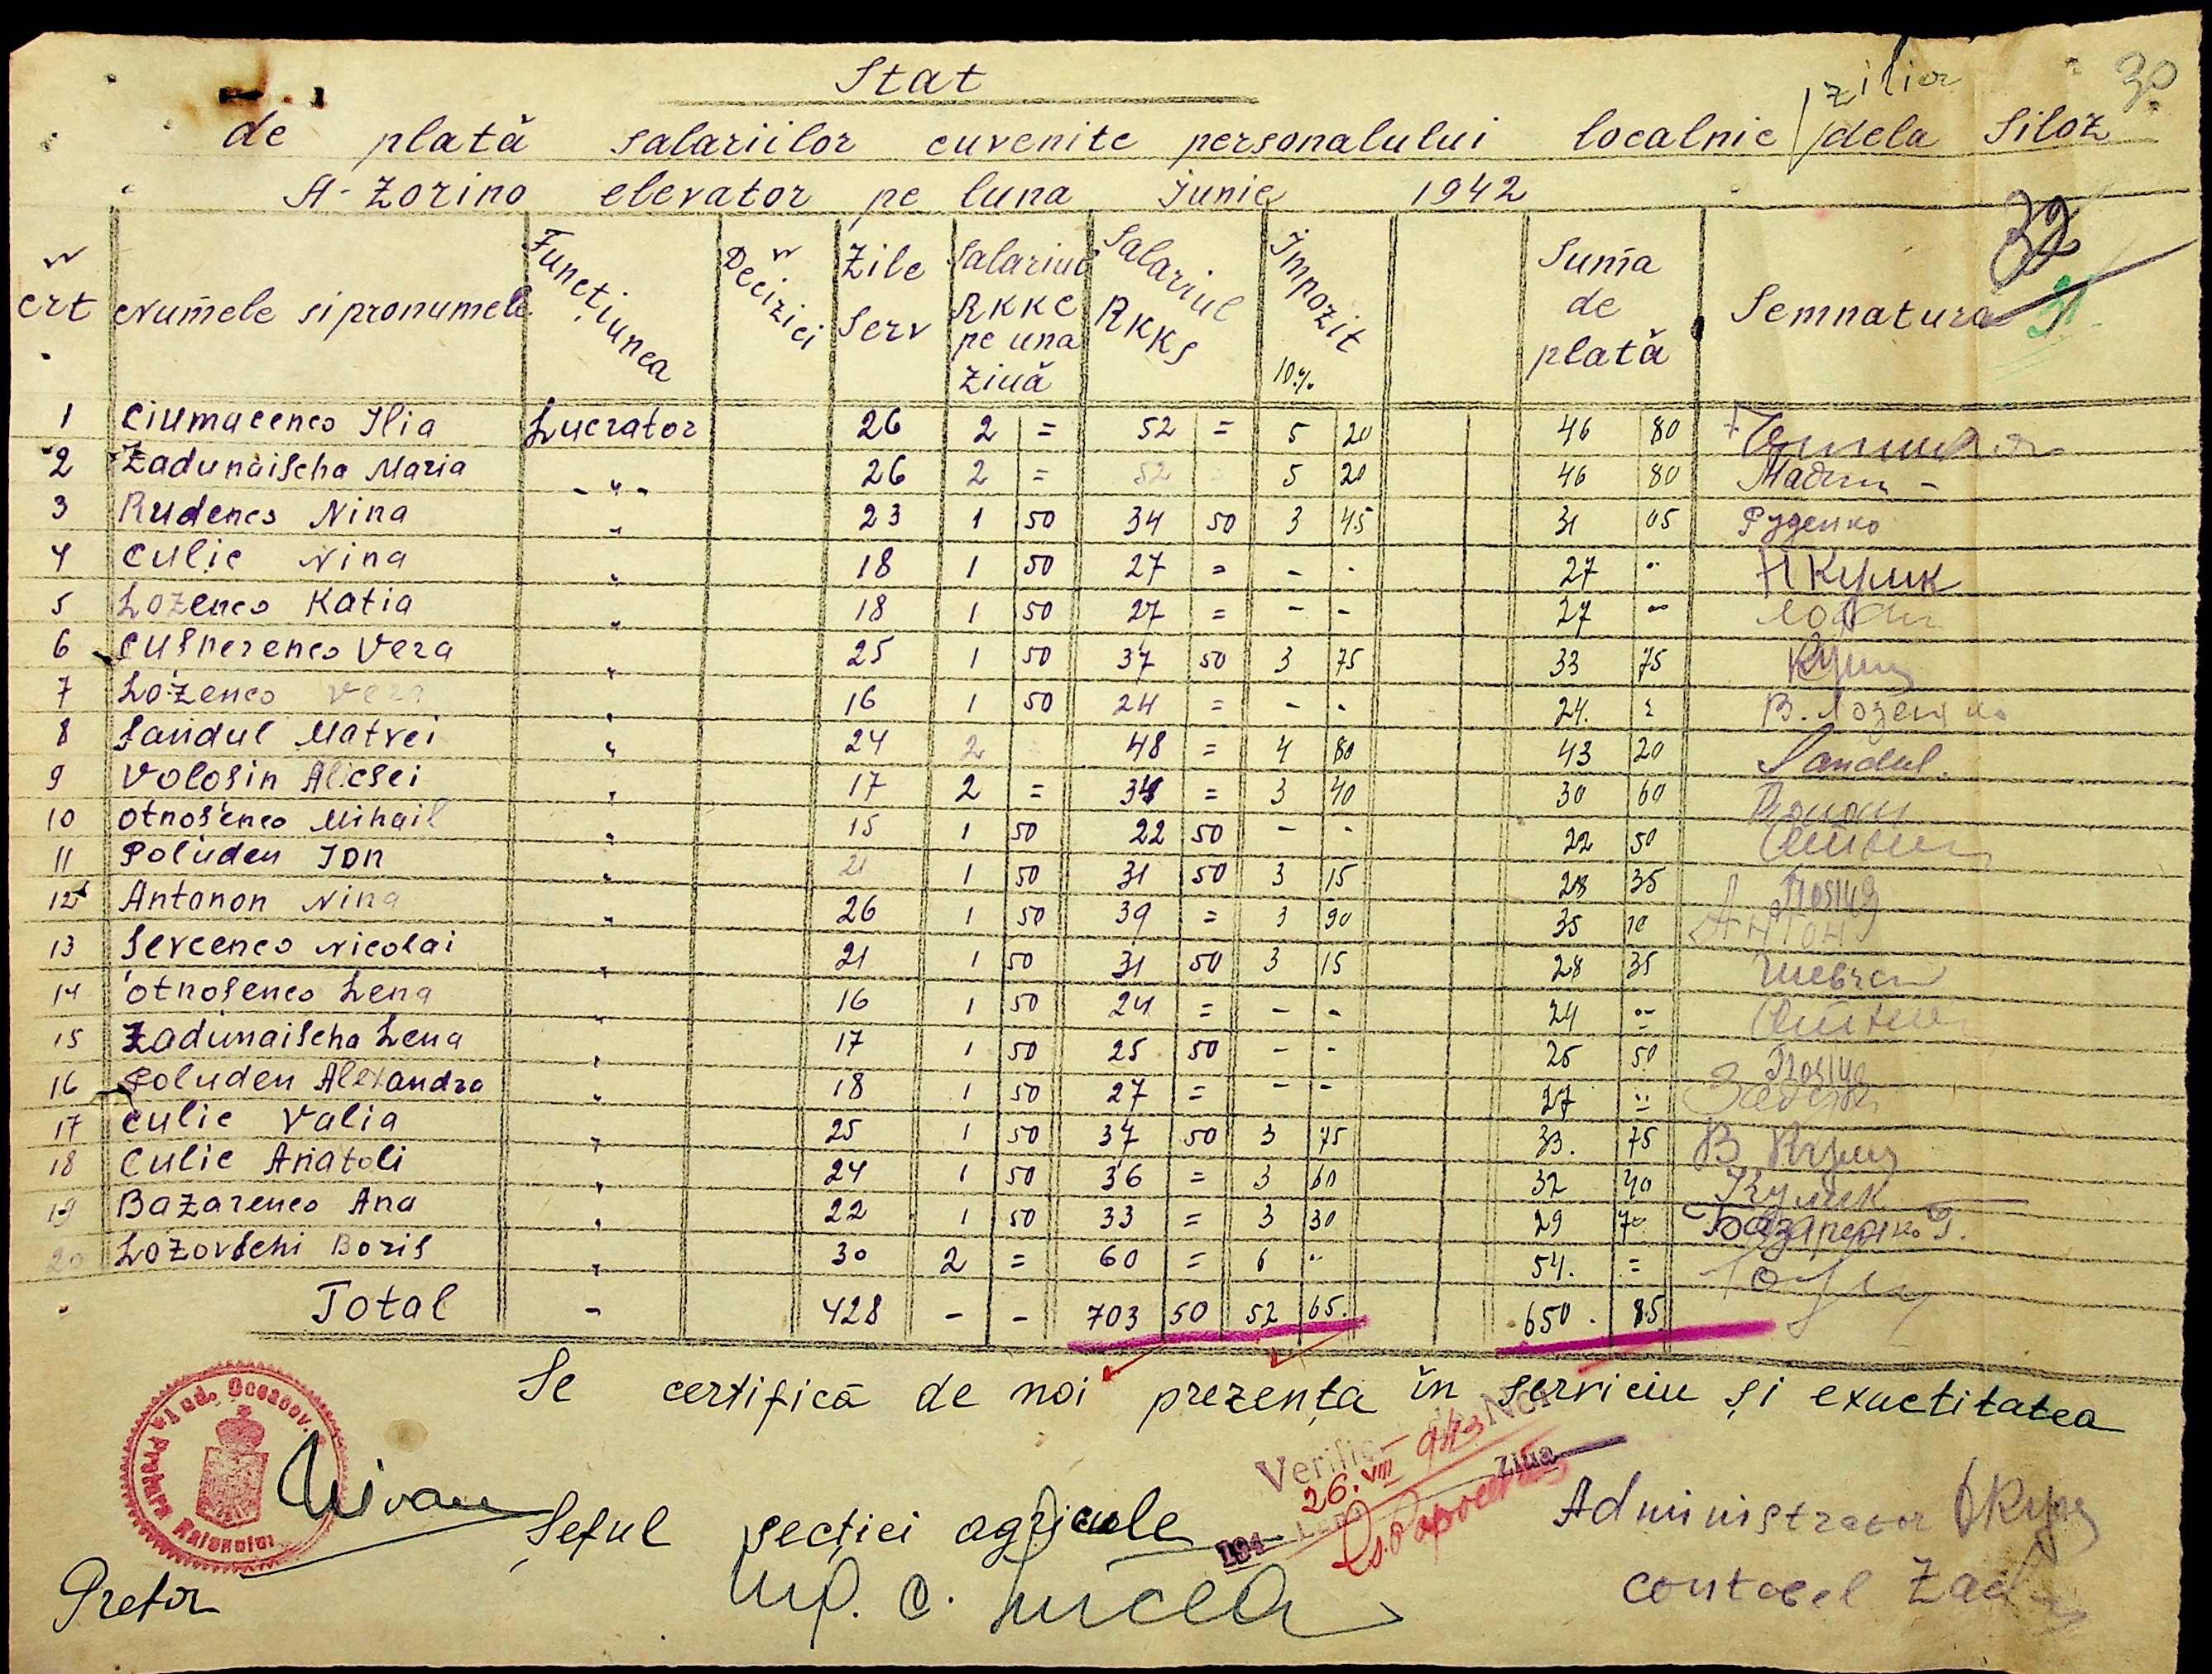 30
zilier
Stat
de plată salariilor cuvenite personalului localnic / dela Siloz
A-Zorino elevator pe luna Junie 1942
32
31
N crt Numele si pronumele Funcțiunea N Deciziei Zile Serv Salariul RKKS pe una ziuă Salariul RKKS Impozit 10% Suma de plată Semnatura
1 Ciumacenco Ilia Lucrator 26 2 = 52 = 5 20 46 80
2 Zadunaischa Maria -"- 26 2 = 52 5 20 46 80
3 Rudenco Nina " 23 1 50 34 50 3 45 31 05 Руденко
4 Culic Nina " 18 1 50 27 = - - 27 - Н Кулик
5 Lozenco Katia " 18 1 50 27 = - - 27 -
6 Cusnerenco Vera " 25 1 50 37 50 3 75 33 75
7 Lozenco Vera " 16 1 50 24 = - - 24. = В. Лозенко
8 Sandul Matvei " 24 2 = 48 = 4 80 43 20 Sandul.
9 Volosin Alecsei " 17 2 = 34 = 3 40 30 60
10 Otnosenco Mihail " 15 1 50 22 50 - - 22 50
11 Poluden Ion " 21 1 50 31 50 3 15 28 35
12 Antonon Nina " 26 1 50 39 = 3 90 35 10 Антон
13 Sevcenco Nicolai " 21 1 50 31 50 3 15 28 35
14 Otnosenco Lena " 16 1 50 24 = - - 24 =
15 Zadunaischa Lena " 17 1 50 25 50 - - 25 50
16 Poluden Alexandra " 18 1 50 27 = - - 27 =
17 Culic Valia " 25 1 50 37 50 3 75 33. 75
18 Culic Anatoli " 24 1 50 36 = 3 60 32 40 Кулик
19 Bazarenco Ana " 22 1 50 33 = 3 30 29 70 Базаренко
20 Lozovschi Boris " 30 2 = 60 = 6 - 54. =
Total - 428 - - 703 50 52 65. 650. 85
Se certifică de noi prezența în serviciu și exactitatea
Jud. Oceacov
Pretura Raionului
26.VIII 943
Ziua
194
Șeful secției agricole
Administrator
Pretor
contabel